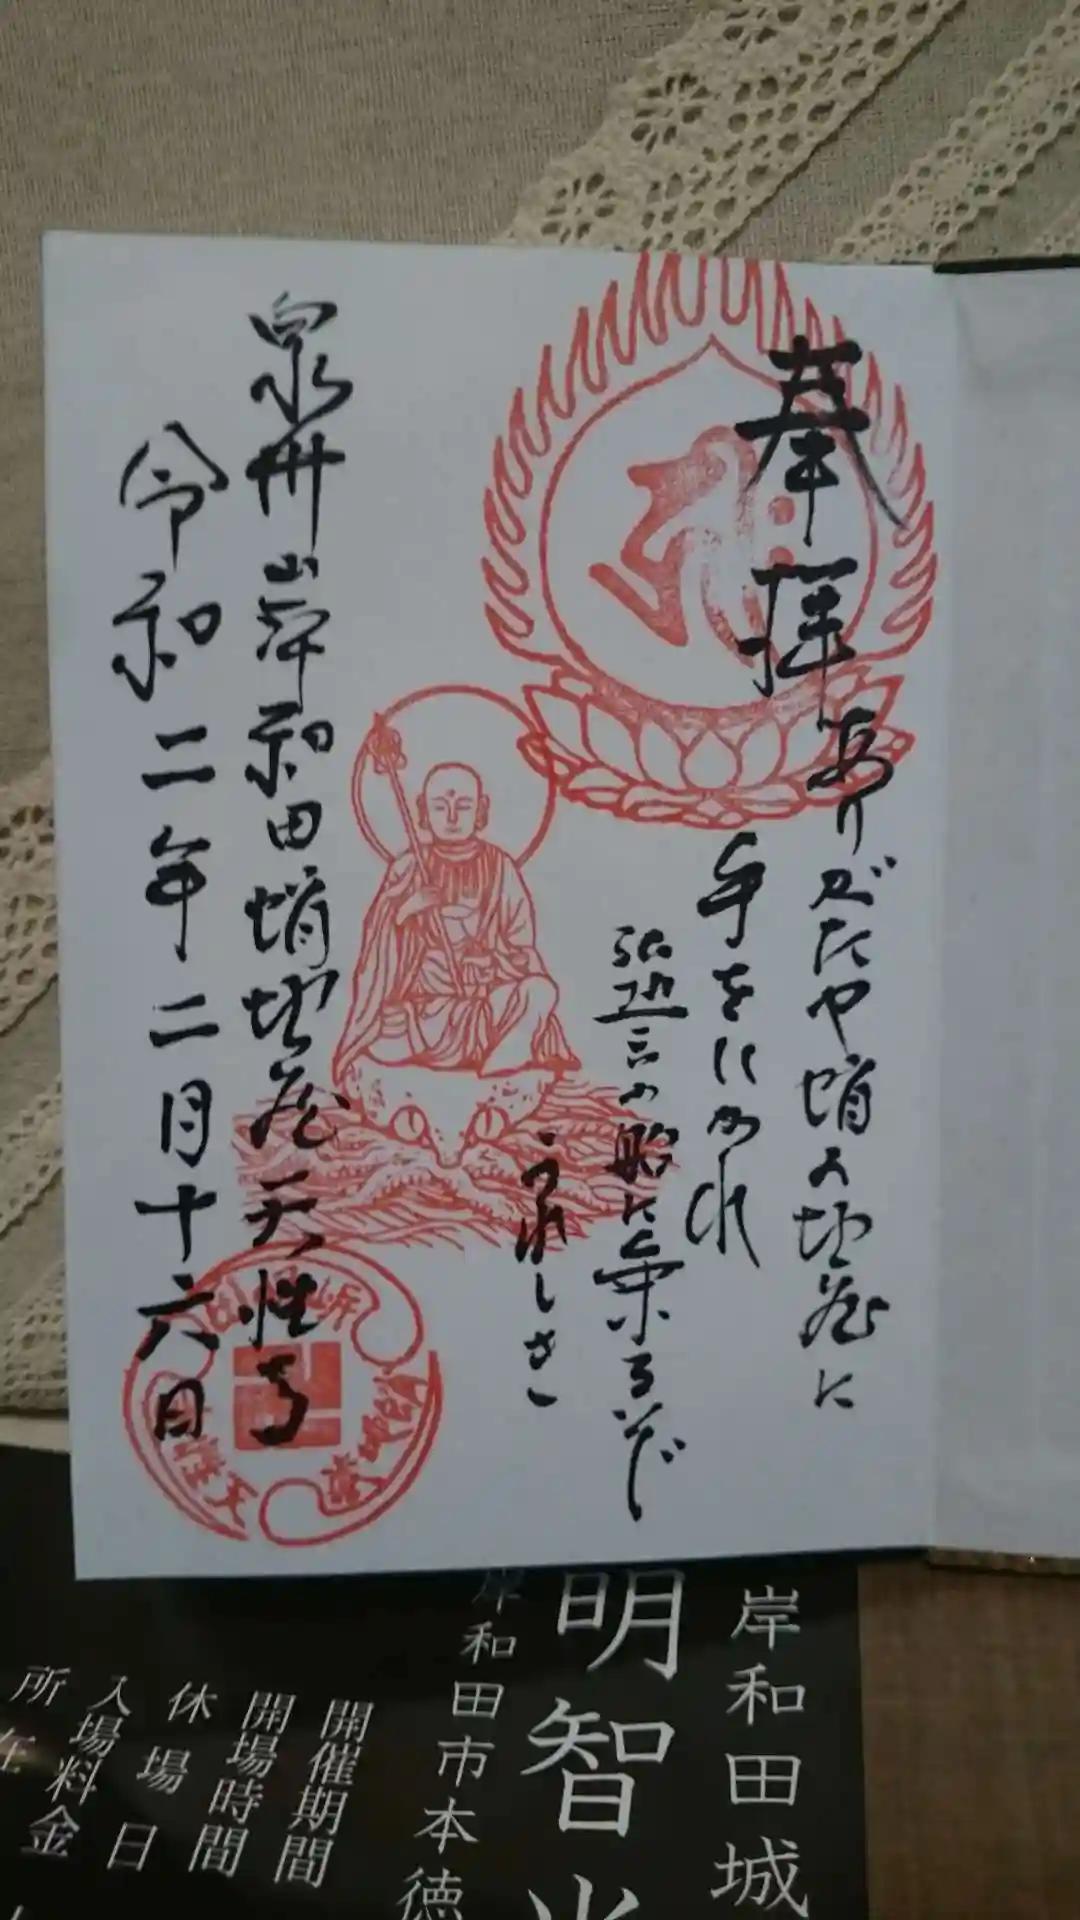 奉拝
ありがたや蛸の地蔵に
手をにかれ
の船に乗るぞ
うれしさ
泉州岸和田蛸地蔵天性寺
令和二年二月十六日
岸和田城
明智光
岸和田市本徳
開催期間
開場時間
休場日
入場料金
所在